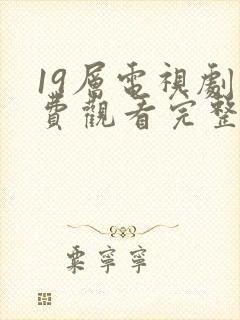 19層電視劇
費觀看完整
栗寧寧